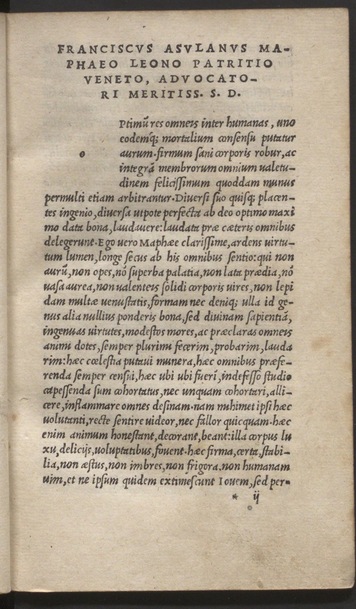 FRANCISCVS ASVLANVS MA-
PHAEO LEONO PATRITIO
VENETO, ADVOCATO-
RI MERITISS. S. D.
Ptimū res omneis inter humanas, uno
eodemq; mortalium consensu putatur
o aurum. firmum sani corporis robur, ac
integrā membrorum omnium ualetu-
dinem felicissimum quoddam munus
permulti etiam arbitrantur. Diuersi suo quisq; placen-
tes ingenio, diuersa utpote perfecta ab deo optimo maxi
mo data bona, laudauere: laudata præ cæteris omnibus
delegerunt. Ego uero Maphæe clarissime, ardens uirtu-
tum lumen, longe secus ab his omnibus sentio: qui non
aurū, non opes, nō superba palatia, non lata prædia, nō
uasa aurea, non ualenteis solidi corporis uires, non lepi
dam multæ uenustatis, formam nec deniq; ulla id ge-
nus alia nullius ponderis bona, sed diuinam sapientiā,
ingenuas uirtutes, modestos mores, ac præclaras omneis
animi dotes, semper plurimi fecerim, probarim, lauda
rim: hæc cœlestia putaui munera, hæc omnibus præfe-
renda semper censui, hæc ubi ubi fuerī, indefesso studio
capessenda sum cohortatus, nec unquam cohortari, alli-
cere, inflammare omnes desinam. nam mihimet ipsi hæc
uolutanti, recte sentire uideor, nec fallor quicquam. hæc
enim animum honestant, decorant, beant: illa corpus lu
xu, delicijs, uoluptatibus, fouent. hæc firma, certa, stabi-
lia, non æstus, non imbres, non frigora, non humanam
uim, et ne ipsum quidem extimescunt Iouem, sed per-
* ij